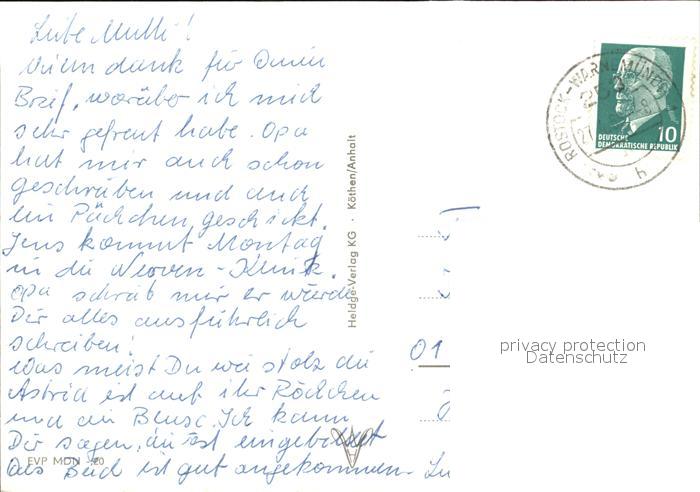 Liebe Mutti!
Vielen dank für Deinen
Brief, worüber ich mich
sehr gefreut habe. Opa
hat mir auch schon
geschrieben und auch
ein Päckchen geschickt.
Jens kommt Montag
in die Nerven-Klinik.
Opa schrieb mir er würde
Dir alles ausführlich
schreiben!
Was meist Du wie stolz die
Astrid ist auf ihr Röckchen
und die Bluse. Ich kann
Dir sagen, die ist eingebildet
Das Beid ist gut angekommen.
EVP MDN -,20
Heldge-Verlag KG · Köthen/Anhalt
ROSTOCK-WARNEMÜNDE
252
27
h
10
DEUTSCHE
DEMOKRATISCHE REPUBLIK
01
privacy protection
Datenschutz